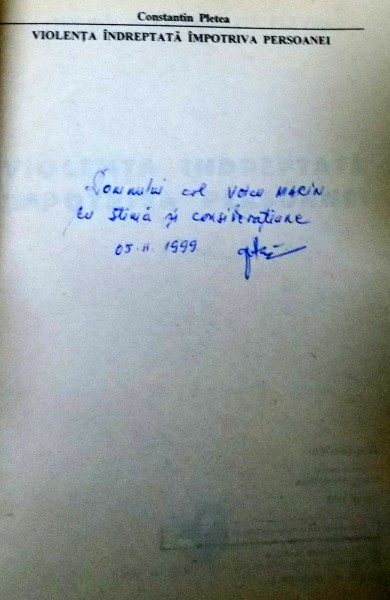 Constantin Pletea
VIOLENȚA ÎNDREPTATĂ ÎMPOTRIVA PERSOANEI
Domnului col Voicu MARIN
cu stimă și considerațiune
05.11.1999